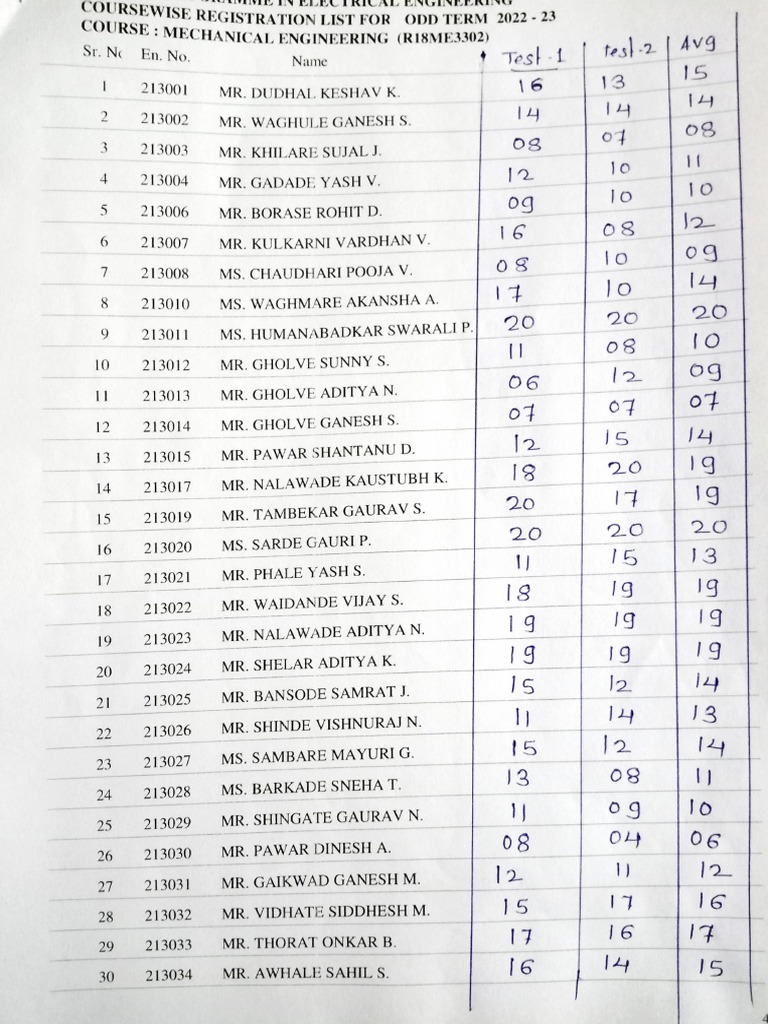 IN ELECTRICAL ENGINEERING
COURSEWISE REGISTRATION LIST FOR ODD TERM 2022 - 23
COURSE : MECHANICAL ENGINEERING (R18ME3302)
Sr. No En. No. Name Test-1 test-2 Avg
1 213001 MR. DUDHAL KESHAV K. 16 13 15
2 213002 MR. WAGHULE GANESH S. 14 14 14
3 213003 MR. KHILARE SUJAL J. 08 07 08
4 213004 MR. GADADE YASH V. 12 10 11
5 213006 MR. BORASE ROHIT D. 09 10 10
6 213007 MR. KULKARNI VARDHAN V. 16 08 12
7 213008 MS. CHAUDHARI POOJA V. 08 10 09
8 213010 MS. WAGHMARE AKANSHA A. 17 10 14
9 213011 MS. HUMANABADKAR SWARALI P. 20 20 20
10 213012 MR. GHOLVE SUNNY S. 11 08 10
11 213013 MR. GHOLVE ADITYA N. 06 12 09
12 213014 MR. GHOLVE GANESH S. 07 07 07
13 213015 MR. PAWAR SHANTANU D. 12 15 14
14 213017 MR. NALAWADE KAUSTUBH K. 18 20 19
15 213019 MR. TAMBEKAR GAURAV S. 20 17 19
16 213020 MS. SARDE GAURI P. 20 20 20
17 213021 MR. PHALE YASH S. 11 15 13
18 213022 MR. WAIDANDE VIJAY S. 18 19 19
19 213023 MR. NALAWADE ADITYA N. 19 19 19
20 213024 MR. SHELAR ADITYA K. 19 19 19
21 213025 MR. BANSODE SAMRAT J. 15 12 14
22 213026 MR. SHINDE VISHNURAJ N. 11 14 13
23 213027 MS. SAMBARE MAYURI G. 15 12 14
24 213028 MS. BARKADE SNEHA T. 13 08 11
25 213029 MR. SHINGATE GAURAV N. 11 09 10
26 213030 MR. PAWAR DINESH A. 08 04 06
27 213031 MR. GAIKWAD GANESH M. 12 11 12
28 213032 MR. VIDHATE SIDDHESH M. 15 17 16
29 213033 MR. THORAT ONKAR B. 17 16 17
30 213034 MR. AWHALE SAHIL S. 16 14 15